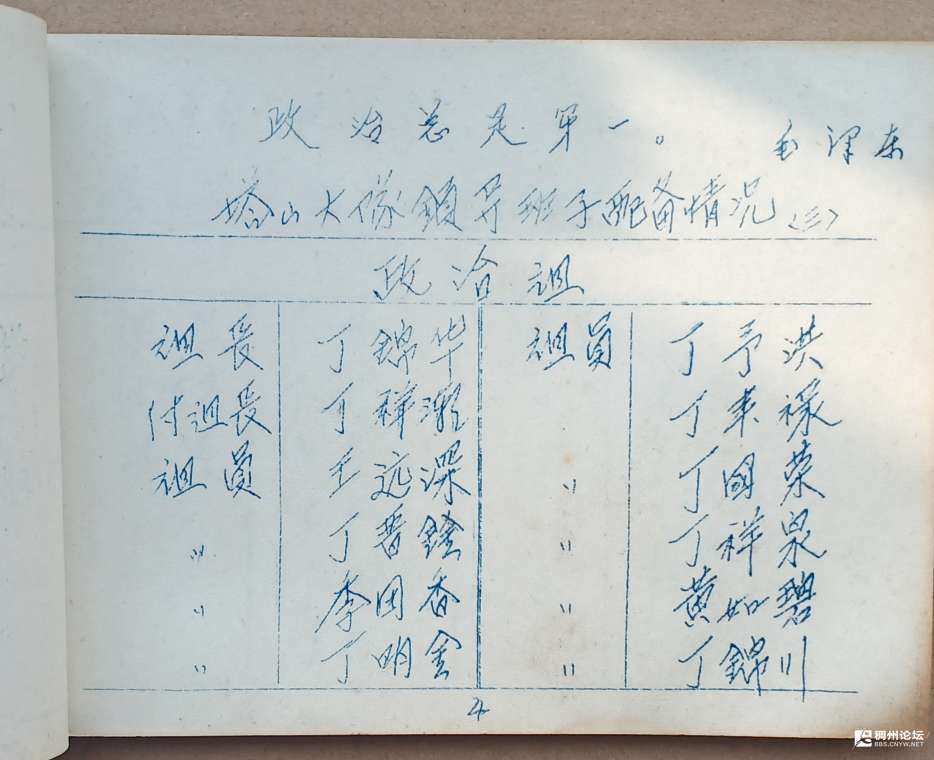 政治总是第一。
毛泽东
塔山大隊領导班子配备情况〈三〉
政治組
組長 丁錦华 組員 丁予洪
付組長 丁祥 丁来禄
組員 王远深 〃 丁國荣
〃 丁晋鏗 〃 丁祥泉
〃 季团香 〃 黄如碧
〃 丁明金 〃 丁錦川
4
稠州论坛
BBS.CNYW.NET